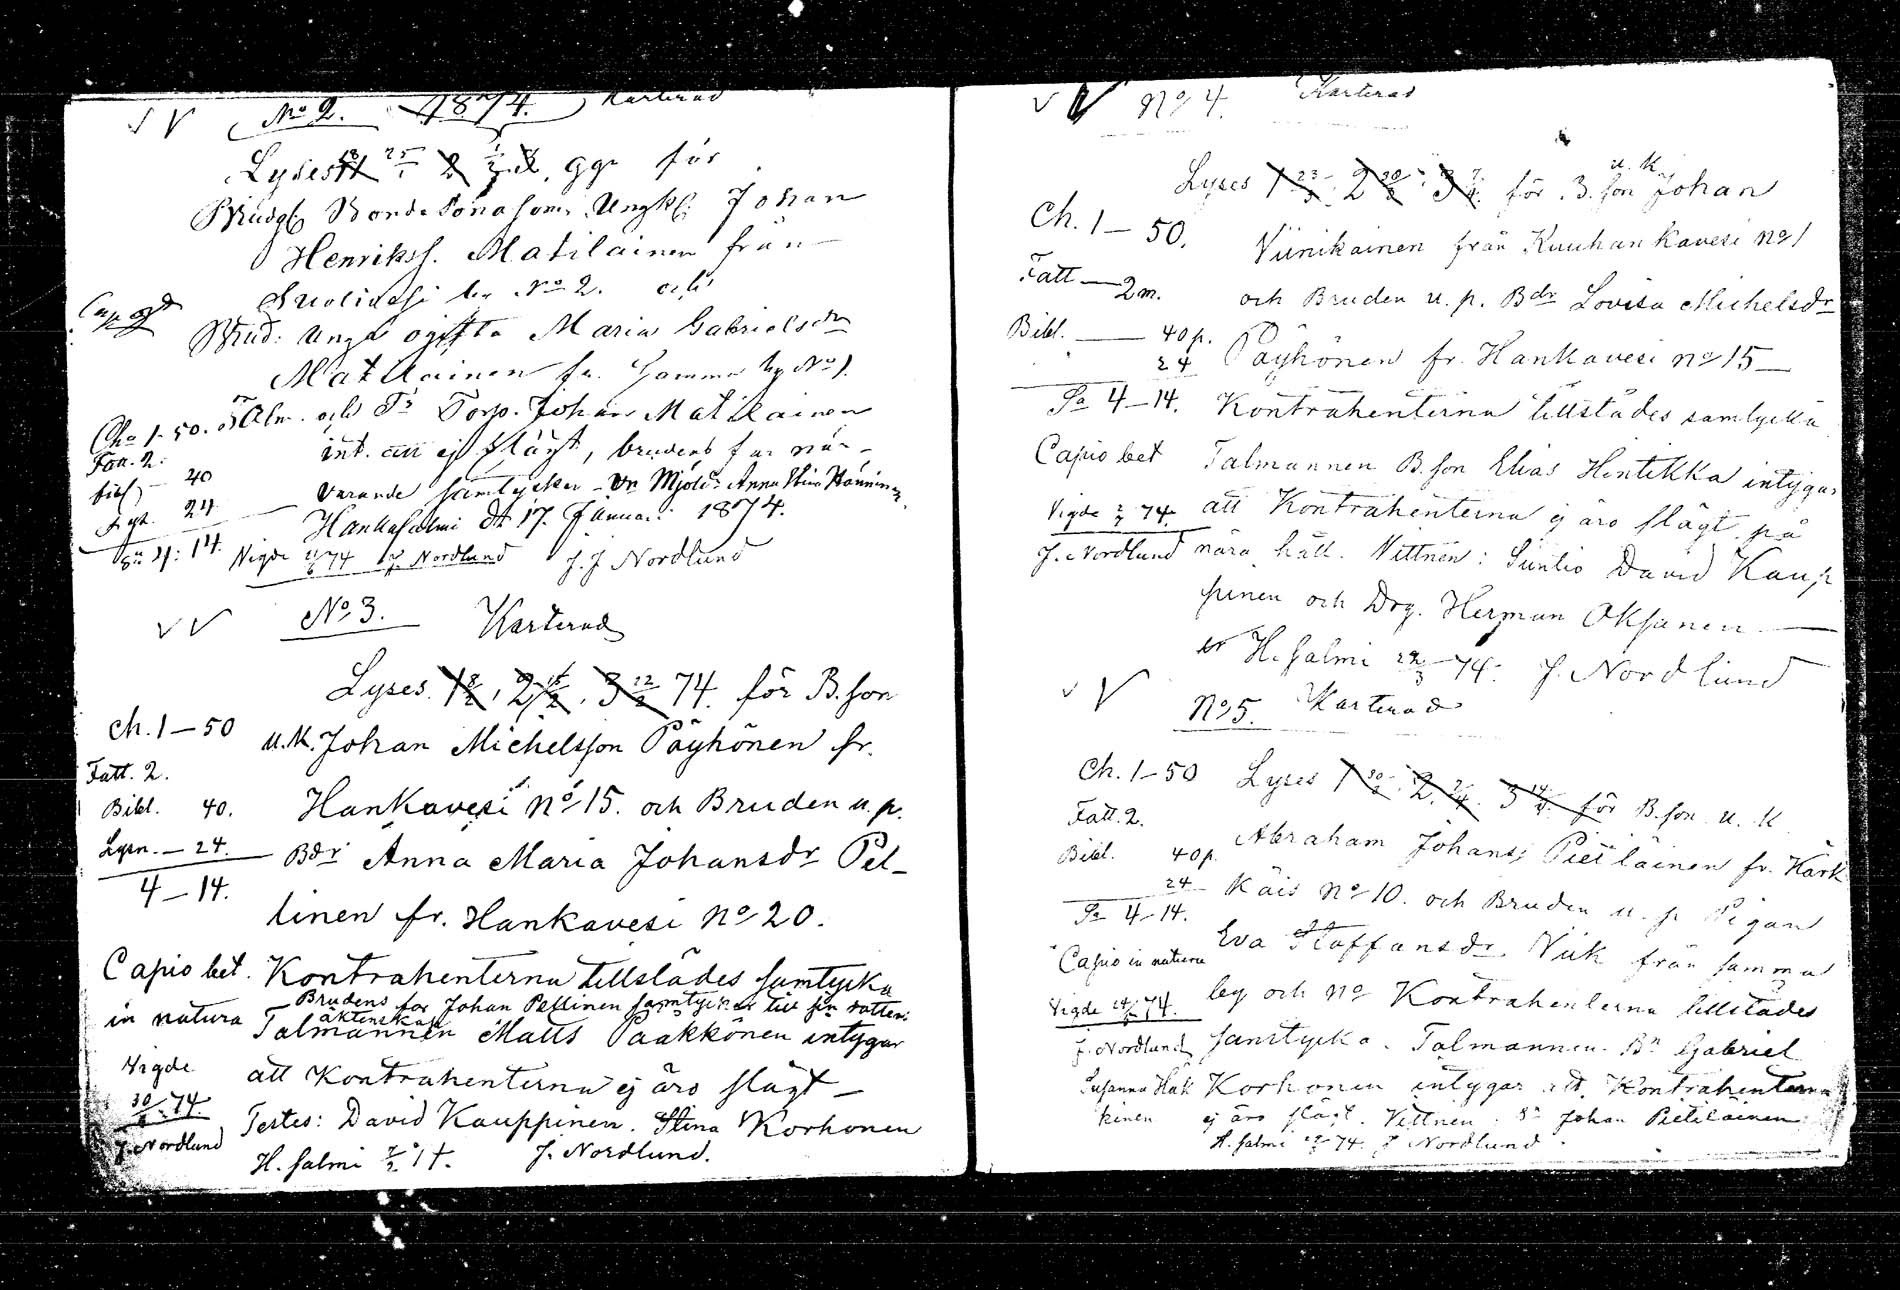 No 2. 1874. Karterad
Lyses 18 25/1 2 1/2 gg. för
Brudg. Bonde sonasonen Ungk. Johan
Henrikss. Matilainen från
Suolivesi by No 2. och
Brud: unga ogifta Maria Gabrielsdr
Matilainen fr. Gamma by No 1.
Talm. och Torp. Johan Matilainen
int. att ej slägt, brudens far när-
varande samtycker - Vn Mjöln: Anna Stina Hänninen
Hankasalmi dt 17. Januari 1874.
Vigde /74 J. Nordlund J. J. Nordlund
Cap.
Cha 1-50.
Fatt. 2.
40
24
Sa 4: 14.
No 3. Karterad
Lyses. 1 8/2, 2 15/2, 3 22/2 74. för B.son
u.k. Johan Michelsson Päyhönen fr.
Hankavesi No 15. och Bruden u. p.
Bdr Anna Maria Johansdr Pel-
linen fr. Hankavesi No 20.
Kontrahenterna tillstädes samtycka
Brudens far Johan Pellinen samtycker till sin dotters
äktenskap
Talmannen Matts Paakkönen intygar
att Kontrahenterna ej äro slägt -
Testes: David Kauppinen. Stina Korhonen
H. salmi 7/2 74. J. Nordlund.
Ch. 1-50
Fatt. 2.
Bibl. 40.
Lysn. - 24.
4-14.
Capio bet.
in natura
Vigde
30/ 74.
J. Nordlund
No 4. Karterad
Lyses 1 23/3 2 30/3 3 7/4 för B.son u. k. Johan
Viinikainen från Kuuhankavesi No 1
och Bruden u. p. Bdr Lovisa Michelsdr
Päyhönen fr. Hankavesi No 15-
Kontrahenterna tillstädes samtycka
Talmannen B.son Elias Hintikka intygar
att Kontrahenterna ej äro slägt på
nära håll. Vittnen: Suntio David Kaup
pinen och Drg. Herman Oksanen -
H. salmi 22/3 74. J. Nordlund
Ch. 1-50.
Fatt - 2 m.
Bibl. - 40 p.
24
Sa 4-14.
Capio bet
Vigde 74.
J. Nordlund
No 5. Karterad
Lyses 1 30/3 2. 7/4. 3 14/4 för B.son u. k
Abraham Johanss Pietiläinen fr. Kärk
käis No 10. och Bruden u. p Pigan
Eva Staffansdr Viik från samma
by och No Kontrahenterna tillstädes
samtycka. Talmannen Bn Gabriel
Korhonen intygar att Kontrahenterna
ej äro slägt. Vittnen: Johan Pietiläinen
H. salmi 74. J Nordlund
Ch. 1-50
Fatt. 2.
Bibl. 40 p.
24
Sa 4-14.
Capio in natura
Vigde 74.
J. Nordlund
Susanna Hak
kinen